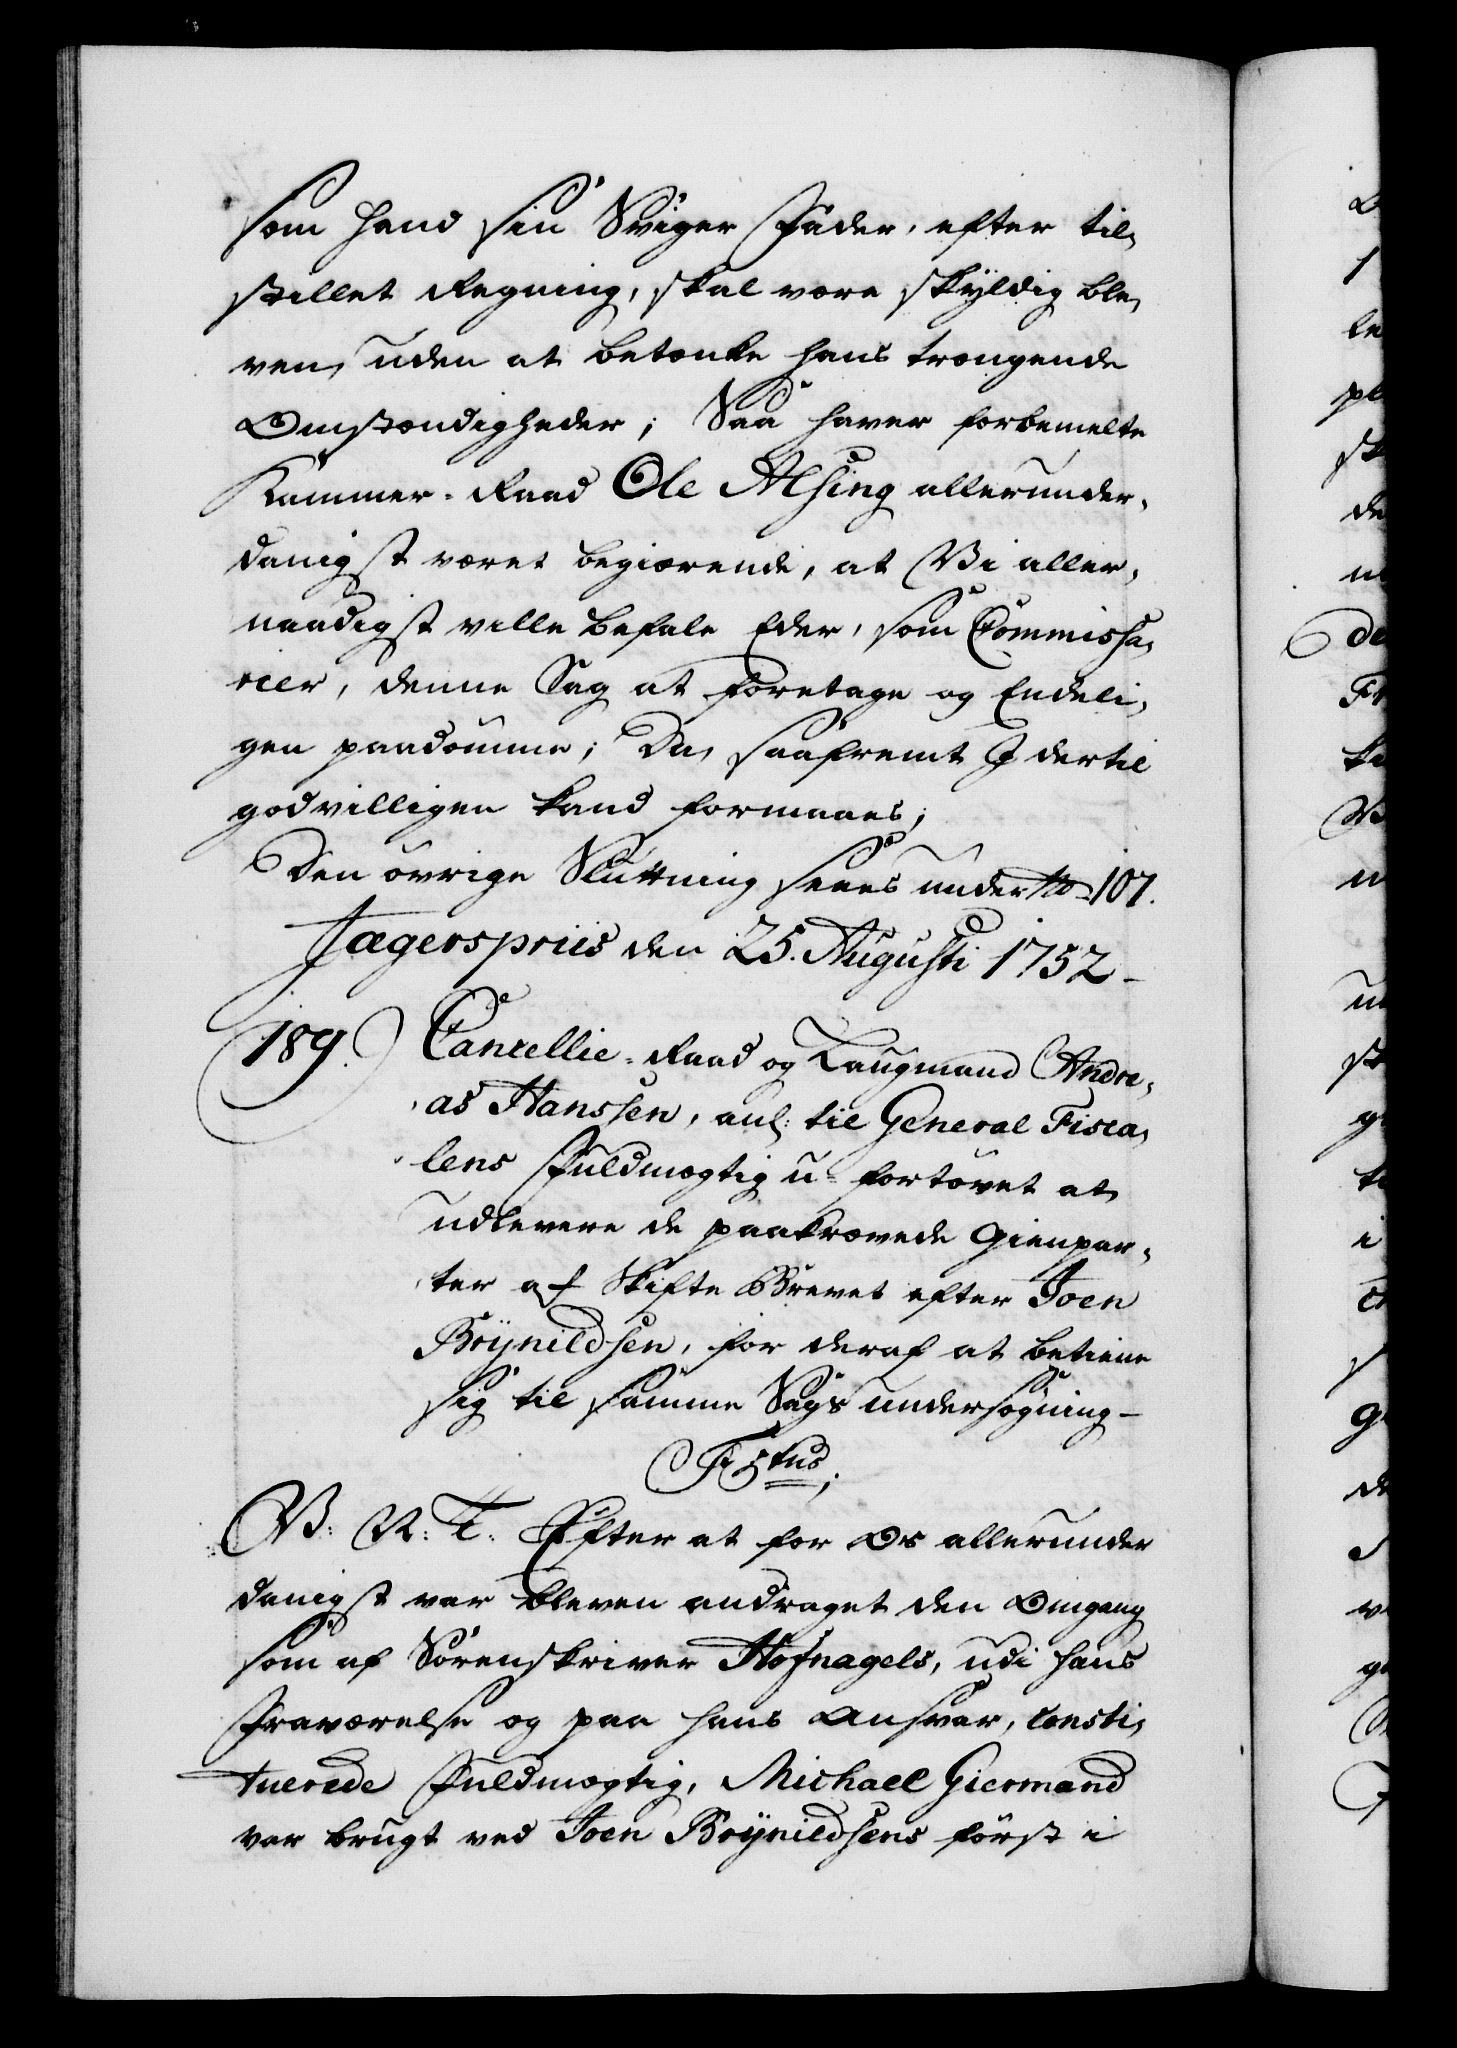 som hand sin Sviger Fader, efter til,
stillet Regning, skal være skyldig ble,
ven, uden at betænke hans trængende
Omstændigheder; Saa haver forbemelte
Kammer-Raad Ole Alsing allerunder,
danigst været begiærende, at Vi aller,
naadigst ville befale Eder, som Commissa,
rier, denne Sag at foretage og Endeli,
gen paadømme; Da, saafremt I dertil
godvilligen kand formaaes;
Den øvrige Slutning sees under No 107.
Jægerspriis den 25. Augusti 1752-
189. Cancellie-Raad og Laugmand Andre,
as Hanssen, anl: til General Fisca,
lens Fuldmægtig u-fortøvet at
udlevere de paakrævede Gienpar,
ter af Skifte Brevet efter Joen
Brynildsen, for deraf at betiene
sig til samme Sags undersøgning-
F 5tus;
V: N: T: Efter at for Os allerunder
danigst var bleven andraget den Omgang
som af Sorenskriver Hofnagels, udi hans
Fraværelse og paa hans Ansvar, consti,
tuerede Fuldmægtig, Michael Giermand
var brugt ved Joen Brynildsens først i